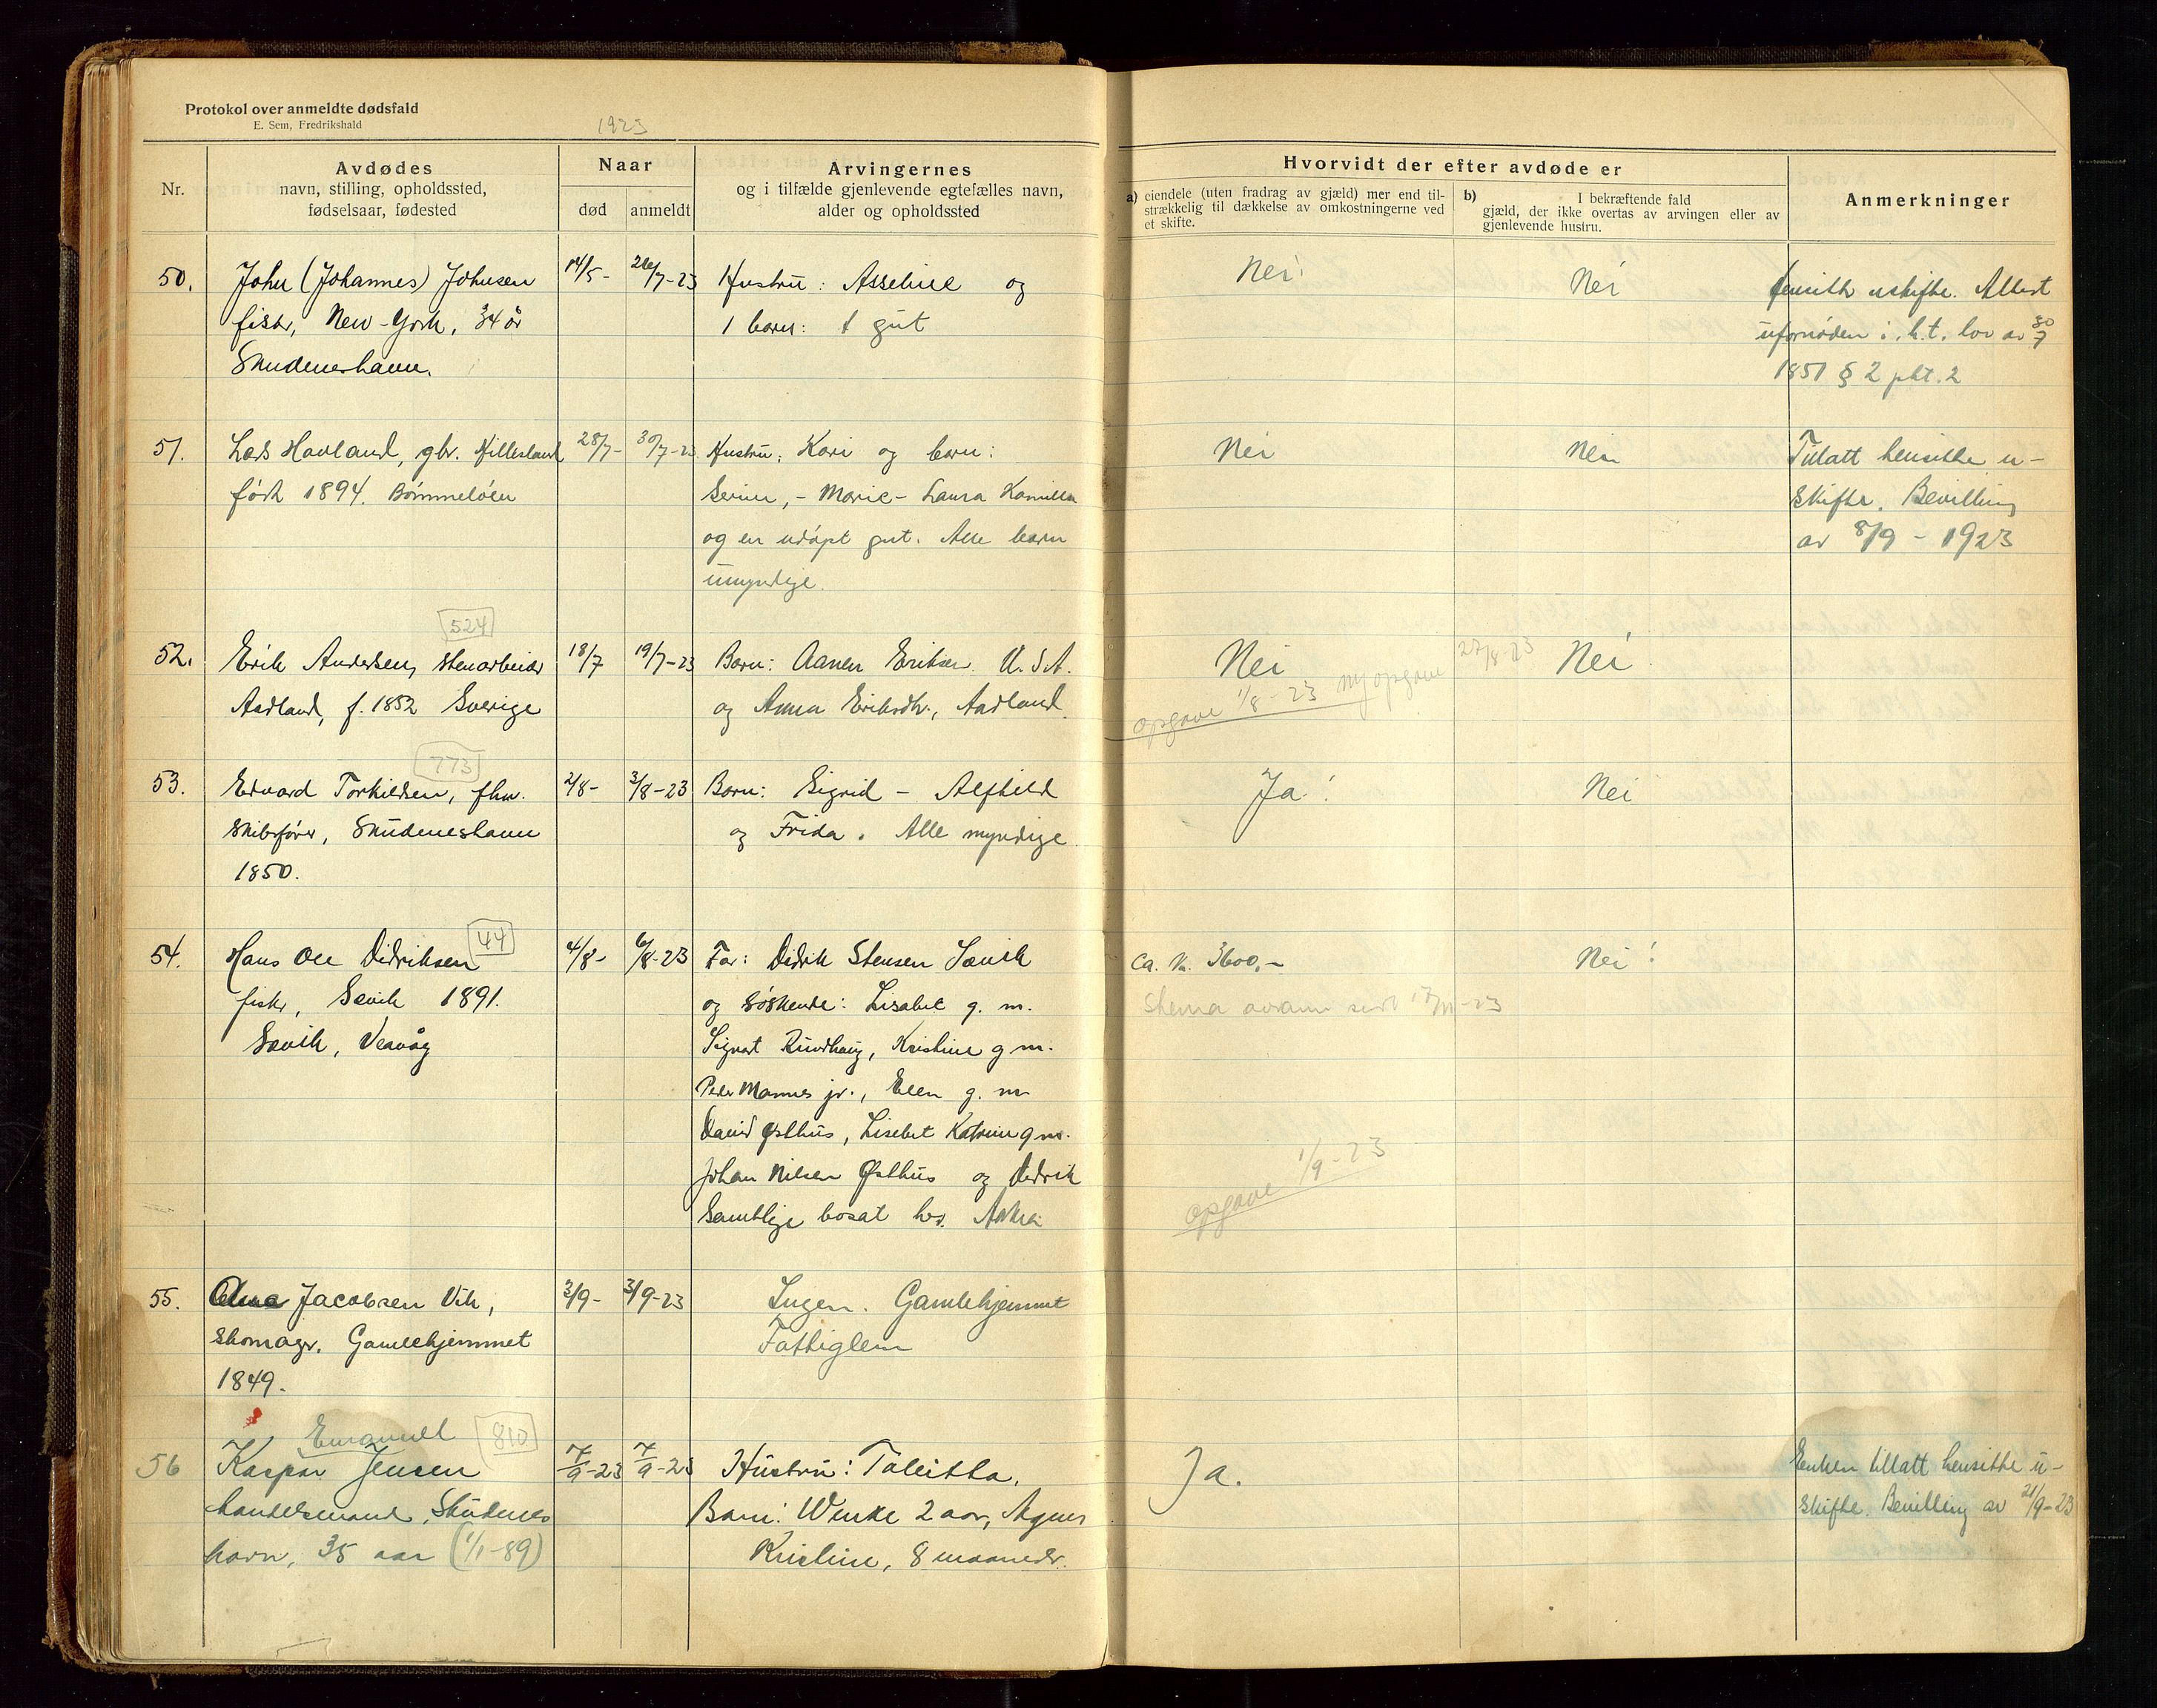 Protokol over anmeldte dødsfald
E. Sem, Fredrikshald
1923
Nr.
Avdødes
navn, stilling, opholdssted,
fødselsaar, fødested
Naar
død
anmeldt
Arvingernes
og i tilfælde gjenlevende egtefælles navn,
alder og opholdssted
Hvorvidt der efter avdøde er
a) eiendele (uten fradrag av gjæld) mer end til-
strækkelig til dækkelse av omkostningerne ved
et skifte.
b) I bekræftende fald
gjæld, der ikke overtas av arvingen eller av
gjenlevende hustru.
Anmerkninger
50.
John (Johannes) Johnsen
fisk, New-York, 34 år
Skudeneshavn.
14/5-
26/7-23
Hustru: Asseline og
1 barn: 1 gut
Nei!
Nei
hensitte uskifte. Attest
ufornøden i. h. t. lov av 30/7
1851 § 2 pkt. 2
51.
Lars Havland, gbr. Hillesland
født 1894. Bømmeløen
28/7-
30/7-23
Hustru: Kari og barn:
Serine, - Marie - Laura Kamilla
og en udøpt gut. Alle barn
umyndige.
Nei
Nei
Tillatt hensitte u-
skifte. Bevilling
av 8/9 - 1923
524
52.
Erik Andersen, stenarbeider
Aadland, f. 1852 Sverige
18/7
19/7-23
Barn: Aanen Eriksen U.S.A.
og Anna Eriksdtr., Aadland.
Nei
opgave 1/8-23 ny opgave 27/8-23
Nei
773
53.
Edvard Torkildsen, fhv.
skibsfører, Skudeneshavn
1850.
2/8-
3/8-23
Barn: Sigrid - Alfhild
og Frida. Alle myndige.
Ja!
Nei
44
54.
Hans Ole Didriksen
fisker, Sævik 1891.
Sævik, Veavåg
4/8-
6/8-23
Far: Didrik Stensen Sævik
og søskende: Lisabet g. m.
Sigvart Rundhaug, Kristine g m.
Peder Mannes jr., Elen g. m
David Østhus, Lisebet Katrine g m.
Johan Nilsen Østhus og Didrik
Samtlige bosat hs. Aakra
ca. kr. 3600,-
Skema sendt 17/11-23
opgave 1/9-23
Nei!
55.
Jacobsen Vik,
skomager, Gamlehjemmet
1849.
3/9-
3/9-23
Ingen. Gamlehjemmet
Fattiglem
Emanuel
810
56
Kaspar Jensen
handelsmand, Skudenes
havn, 35 aar (1/1-89)
7/9-23
7/9-23
Hustru: Talitta,
Barn: Wenke 2 aar, Agnes
Kristine, 8 maaneder.
Ja.
Enken tillatt hensitte u-
skifte. Bevilling av 21/9-23